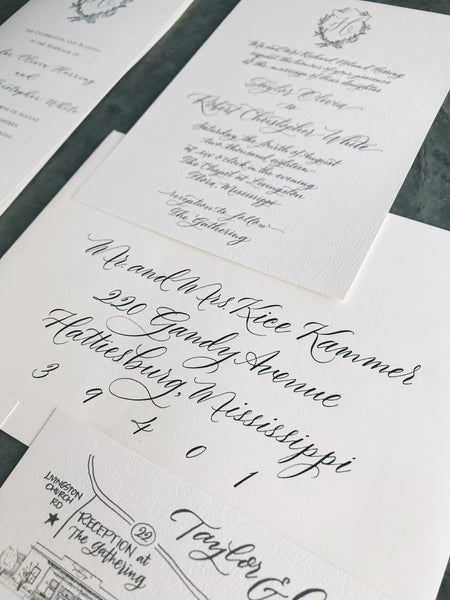 THE CELEBRATION AND BLESSING
OF THE MARRIAGE OF
Olivia Herring
and
Christopher White
OF AUGUST
Mr. and Mrs. Richard Herring
request the honour of your presence
at the marriage of their daughter
Taylor Olivia
to
Robert Christopher White
Saturday, the fourth of August
two thousand eighteen
at six o'clock in the evening
The Chapel at Livingston
Flora, Mississippi
Reception to follow
The Gathering
Mr. and Mrs Kice Kammer
220 Gandy Avenue
Hattiesburg, Mississippi
3 9 4 0 1
LIVINGSTON
CHURCH
RD
22
RECEPTION at
The Gathering
Taylor &